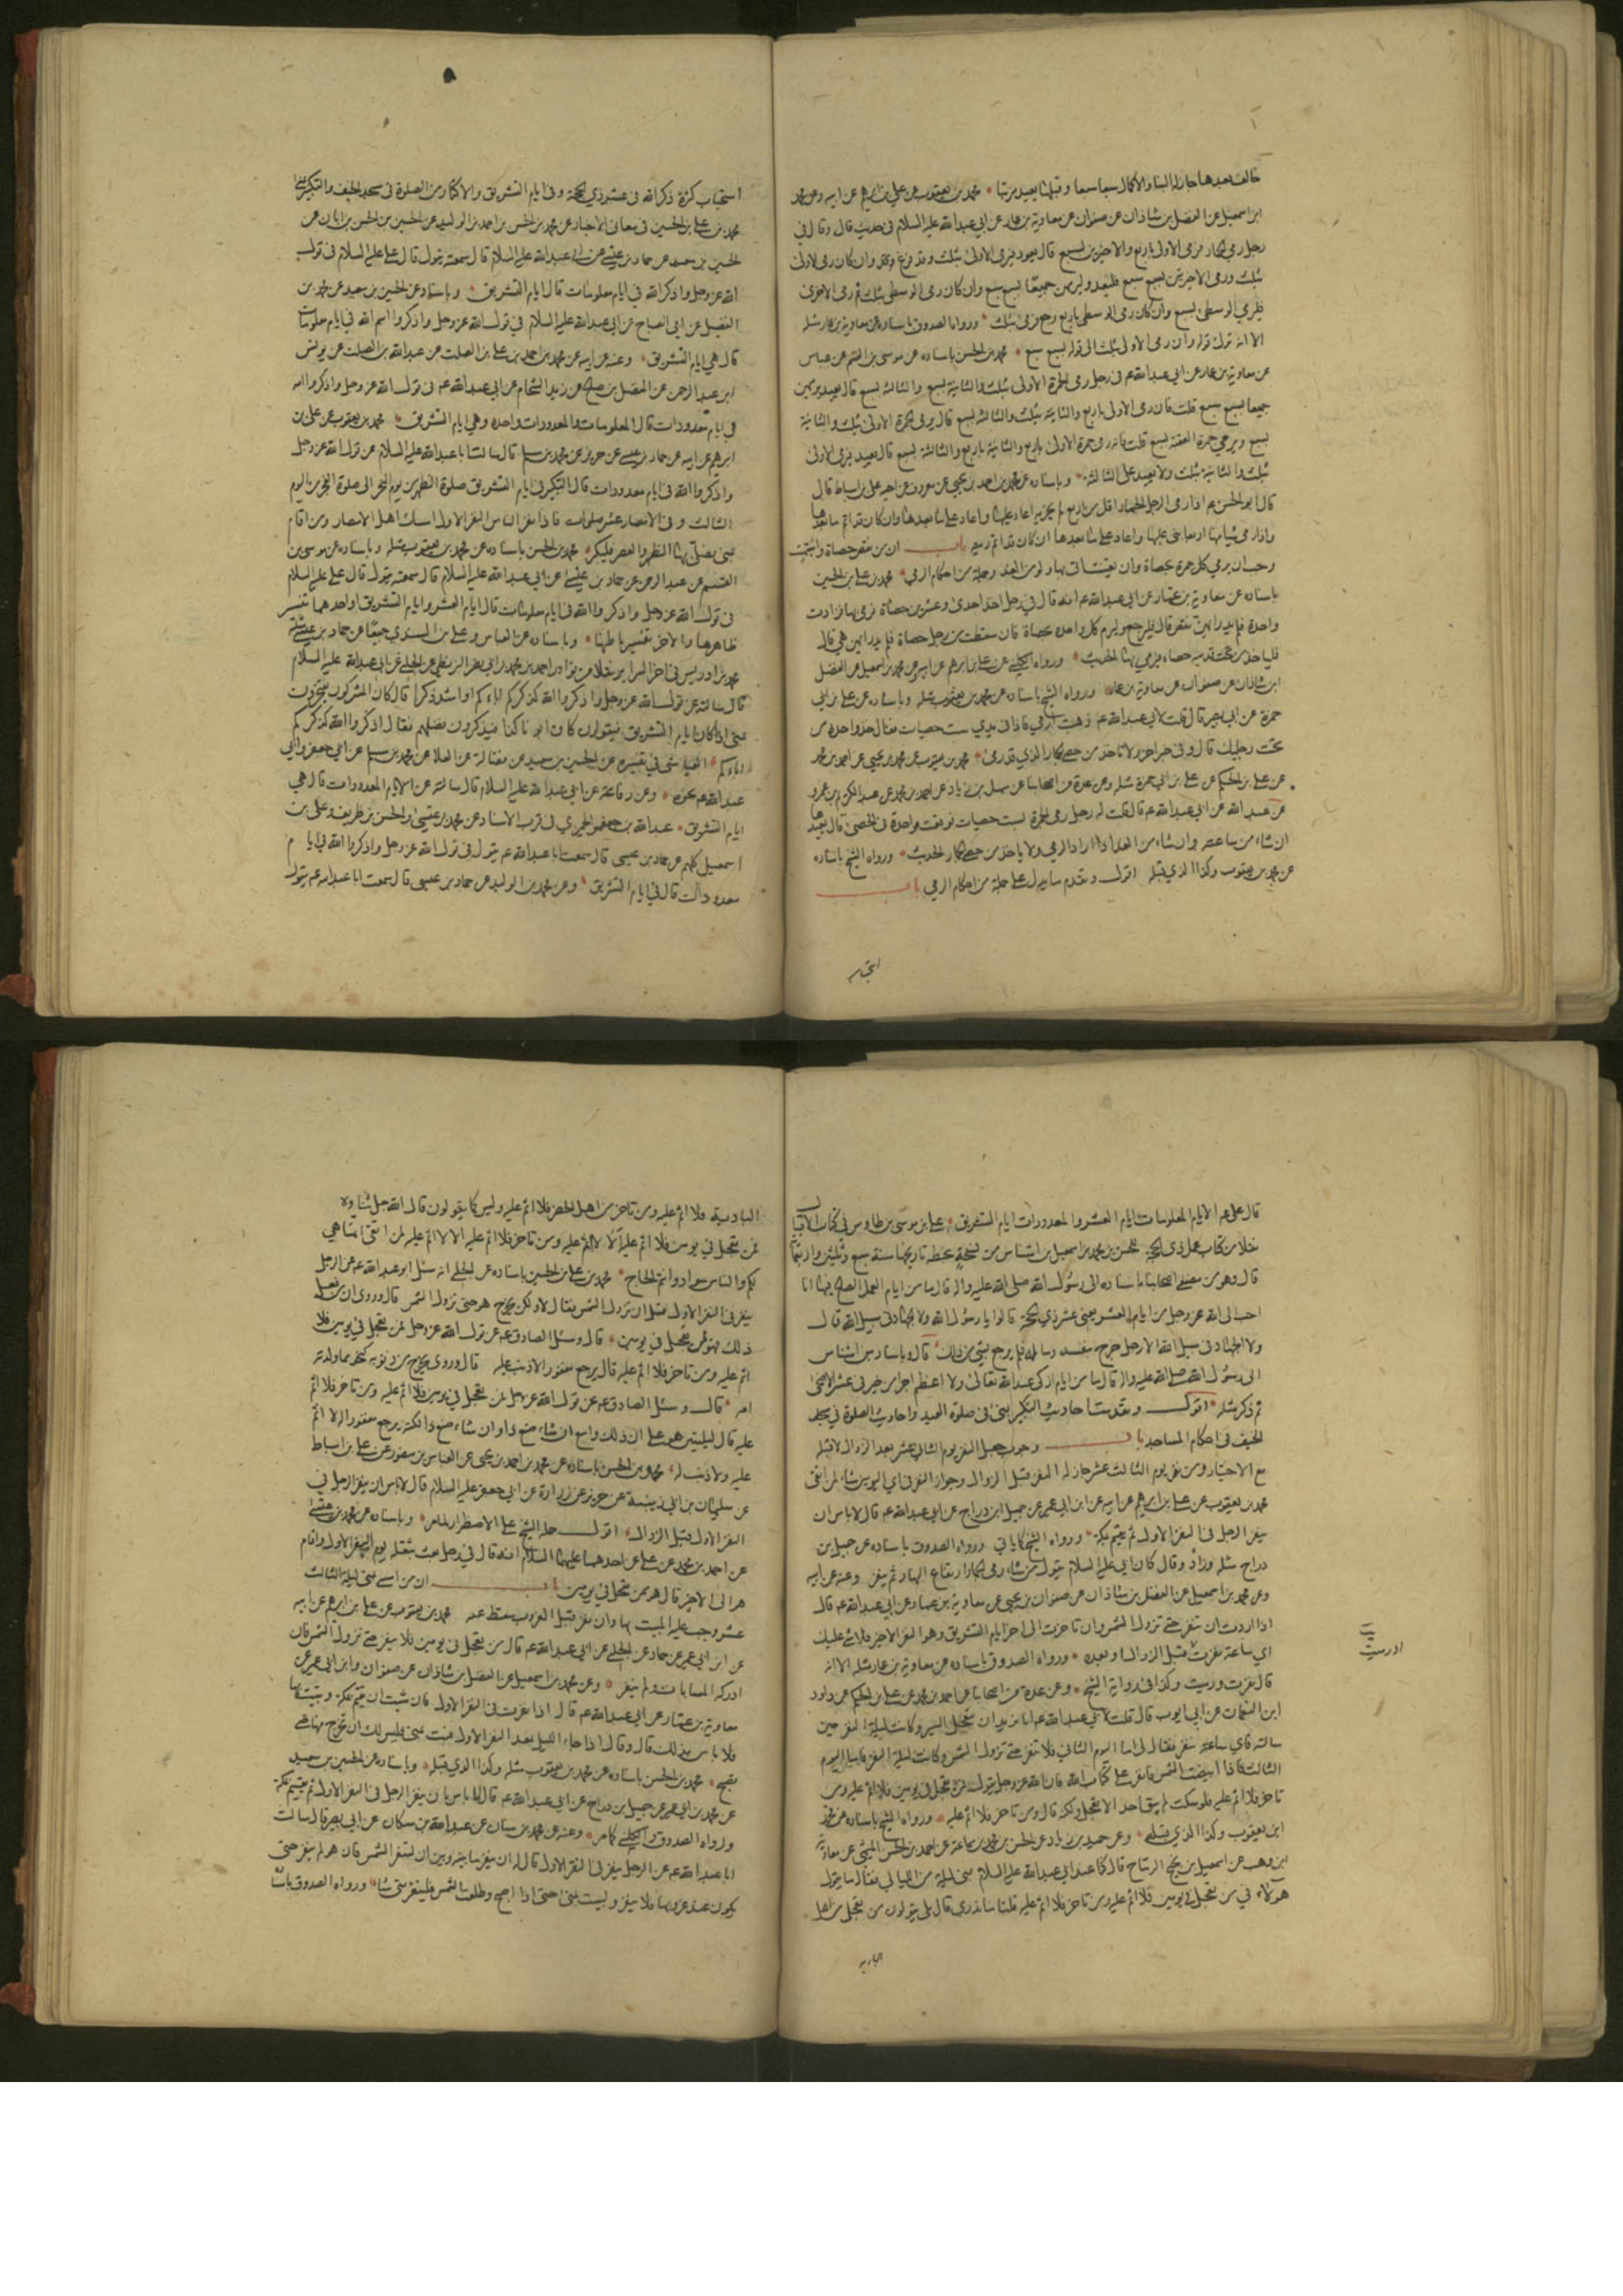 خالف بعدها جاز له البناء والاكمال سبعا سبعا وقبلها يعيد مرتبا محمد بن يعقوب عن علي بن ابرهيم عن ابيه وعن محمد
ابن اسمعيل عن الفضل بن شاذان عن صفوان عن معاوية بن عمار عن ابي عبد الله عليه السلام في حديث قال وقال في
رجل رمى الجمار فرمى الاولى باربع والاخيرتين بسبع سبع قال يعود فيرمي الاولى بثلث وقد فرغ وان كان رمى الاولى
بثلث ورمى الاخيرتين بسبع سبع فليعد وليرمهن جميعا بسبع سبع وان كان رمى الوسطى بثلث ثم رمى الاخرى
فليرم الوسطى بسبع وان كان رمى الوسطى باربع رجع فرمى بثلث ورواه الصدوق باسناده عن معاوية بن عمار مثله
الا انه ترك قوله وان رمى الاولى بثلث الى قوله بسبع سبع محمد بن الحسن باسناده عن موسى بن القسم عن عباس
عن معاوية بن عمار عن ابي عبد الله عم في رجل رمى الجمرة الاولى بثلث والثانية بسبع والثالثة بسبع قال يعيد يرميهن
جميعا بسبع سبع قلت فان رمى الاولى باربع والثانية بثلث والثالثة بسبع قال يرمي الجمرة الاولى بثلث والثانية
بسبع ويرمي جمرة العقبة بسبع قلت فانه رمى جمرة الاولى باربع والثانية باربع والثالثة بسبع قال يعيد فيرمي الاولى
بثلث والثانية بثلث ولا يعيد على الثالثة وباسناده عن محمد بن احمد بن يحيى عن معروف عن اخيه عن علي بن اسباط قال
قال ابو الحسن عم اذا رمى الرجل الجمار اقل من اربع لم يجزيه اعاد عليها واعاد على ما بعدها وان كان قد اتم ما بعدها
واذا رمى شيئا منها اربعا بنى عليها واعاد على ما بعدها ان كان قد اتم رميه باب ان من نقص حصاة واشتبهت
وجب ان يرمي كل جمرة بحصاة وان يعيد التي بها ولو من الغد وجملة من احكام الرمي محمد بن علي بن الحسين
باسناده عن معاوية بن عمار عن ابي عبد الله عم انه قال في رجل اخذ احدى وعشرين حصاة فرمى بها فزادت
واحدة فلم يدر ايهن نقص قال فليرجع وليرم كل واحدة بحصاة فان سقطت من رجل حصاة فلم يدر ايهن هي قال
فلياخذ من تحت قدميه حصاه فيرمي بها الحديث ورواه الكليني عن علي بن ابرهيم عن ابيه وعن محمد بن اسمعيل عن الفضل
ابن شاذان عن صفوان عن معاوية بن عمار ورواه الشيخ باسناده عن محمد بن يعقوب مثله وباسناده عن علي بن ابي
حمزة عن ابي بصير قال قلت لابي عبد الله عم ذهبت ارمي فاذا في يدي ست حصيات فقال خذ واحدة من
تحت رجليك قال وفي خبر اخر ولا تاخذ من حصى الجمار الذي قد رمي محمد بن يعقوب عن محمد بن يحيى عن احمد بن محمد
عن علي بن الحكم عن علي بن ابي حمزة مثله وعن عدة من اصحابنا عن سهل بن زياد عن احمد بن محمد عن عبد الكريم بن عمرو
عن عبد الله عن ابي عبد الله عم قال قلت له رجل رمى الجمرة بست حصيات فوقعت واحدة في الحصى قال يعيدها
ان شاء من ساعته وان شاء من الغد اذا اراد الرمي ولا ياخذ من حصى الجمار الحديث ورواه الشيخ باسناده
عن محمد بن يعقوب وكذا الذي قبله اقول وتقدم ما يدل على جملة من احكام الرمي باب
استحباب كثرة ذكر الله في عشر ذي الحجة وفي ايام التشريق والاكثار من الصلوة في مسجد الخيف والتكبير بمنى
محمد بن علي بن الحسين في معاني الاخبار عن محمد بن الحسن بن احمد بن الوليد عن الحسين بن الحسن بن ابان عن
الحسين بن سعيد عن حماد بن عيسى عن ابي عبد الله عليه السلام قال سمعته يقول قال علي عليه السلام في قول
الله عز وجل واذكروا الله في ايام معلومات قال ايام التشريق وباسناده عن الحسين بن سعيد عن محمد بن
الفضيل عن ابي الصباح عن ابي عبد الله عليه السلام في قول الله عز وجل واذكروا اسم الله في ايام معلومات
قال هي ايام التشريق وعنه عن ابيه عن محمد بن احمد بن علي بن الصلت عن عبد الله بن الصلت عن يونس
ابن عبد الرحمن عن المفضل بن صالح عن زيد الشحام عن ابي عبد الله عم في قول الله عز وجل واذكروا الله
في ايام معدودات قال المعلومات والمعدودات واحدة وهي ايام التشريق محمد بن يعقوب عن علي بن
ابرهيم عن ابيه عن حماد بن عيسى عن حريز عن محمد بن مسلم قال سالت ابا عبد الله عليه السلام عن قول الله عز وجل
واذكروا الله في ايام معدودات قال التكبير في ايام التشريق صلوة الظهر من يوم النحر الى صلوة الفجر من اليوم
الثالث وفي الامصار عشر صلوات فاذا نفر الناس النفر الاول امسك اهل الامصار ومن اقام
بمنى فصلى بها الظهر والعصر فليكبر محمد بن الحسن باسناده عن محمد بن يعقوب مثله وباسناده عن موسى بن
القسم عن عبد الرحمن عن حماد بن عيسى عن ابي عبد الله عليه السلام قال سمعته يقول قال علي عليه السلام
في قول الله عز وجل واذكروا الله في ايام معلومات قال ايام العشر وايام التشريق اواحدهما تفسير
ظاهرها والاخر تفسير باطنها وباسناده عن العباس وعلي بن السندي جميعا عن حماد بن عيسى مثله
محمد بن ادريس في اخر السراير نقلا من نوادر احمد بن محمد بن ابي نصر البزنطي عن الحلبي عن ابي عبد الله عليه السلام
قال سالته عن قول الله عز وجل واذكروا الله كذكركم اباءكم او اشد ذكرا قال كان المشركون يفتخرون
بمنى اذا كان ايام التشريق فيقولون كان ابونا كذا فيذكرون فضلهم فقال اذكروا الله كذكركم
اباءكم العياشي في تفسيره عن الحسين بن سعيد عن فضالة عن العلا عن محمد بن مسلم عن ابي جعفر وابي
عبد الله عم نحوه وعن رفاعة عن ابي عبد الله عليه السلام قال سالته عن الايام المعدودات قال هي
ايام التشريق عبد الله بن جعفر الحميري في قرب الاسناد عن محمد بن عيسى والحسن بن ظريف وعلي بن
اسمعيل كلهم عن حماد بن عيسى قال سمعت ابا عبد الله عم يقول في قول الله عز وجل واذكروا الله في ايام
معدودات قال في ايام التشريق وعن محمد بن الوليد عن حماد بن عيسى قال سمعت ابا عبد الله عم يقول
قال علي عم الايام المعلومات ايام العشر والمعدودات ايام التشريق علي بن موسى بن طاوس في كتاب الاقبال
نقلا من كتاب عمل ذي الحجة للحسن بن محمد بن اسمعيل بن اشناس من نسخة بخطه تاريخها سنة سبع وثلثين واربعمائة
قال وهو من مصنفي اصحابنا باسناده الى رسول الله صلى الله عليه واله قال ما من ايام العمل الصالح فيها
احب الى الله عز وجل من ايام العشر يعني عشر ذي الحجة قالوا يا رسول الله ولا الجهاد في سبيل الله قال
ولا الجهاد في سبيل الله الا رجل خرج بنفسه وماله فلم يرجع بشيء من ذلك قال وباسناد بن اشناس
الى رسول الله صلى الله عليه واله قال ما من ايام ازكى عند الله تعالى ولا اعظم اجرا من خير في عشر الاضحى
ثم ذكر مثله اقول وتقدمت احاديث التكبير بمنى في صلوة العيد واحاديث الصلوة في مسجد
الخيف في احكام المساجد باب وجوب جعل النفر يوم الثاني عشر بعد الزوال لا قبله
مع الاختيار ومن نفر يوم الثالث عشر جاز له النفر قبل الزوال وجواز النفر في اي اليومين شاء لمن اتقى
محمد بن يعقوب عن علي بن ابرهيم عن ابيه عن ابن ابي عمير عن جميل ابن دراج عن ابي عبد الله عم قال لا باس ان
ينفر الرجل في النفر الاول ثم يقيم بمكة ورواه الشيخ كما ياتي ورواه الصدوق باسناده عن جميل بن
دراج مثله وزاد وقال كان ابي عليه السلام يقول من شاء رمى الجمار ارتفاع النهار ثم ينفر وعنه عن ابيه
وعن محمد بن اسمعيل عن الفضل بن شاذان عن صفوان بن يحيى عن معاوية بن عمار عن ابي عبد الله عم قال
اذا اردت ان تنفر حتى تزول الشمس وان تاخرت الى اخر ايام التشريق وهو النفر الاخير فلا عليك
اي ساعة نفرت قبل الزوال او بعده ورواه الصدوق باسناده عن معاوية بن عمار مثله الا انه
قال نفرت ورميت وكذا في رواية الشيخ وعن عدة من اصحابنا عن احمد بن محمد عن علي بن الحكم عن داود
ابن النعمان عن ابي ايوب قال قلت لابي عبد الله عم انا نريد ان نتعجل السير وكانت ليلة النفر حين
سالته فاي ساعة ننفر فقال لي اما اليوم الثاني فلا تنفر حتى تزول الشمس وكانت ليلة النفر فاما اليوم
الثالث فاذا ابيضت الشمس فانفر على كتاب الله فان الله عز وجل يقول فمن تعجل في يومين فلا اثم عليه ومن
تاخر فلا اثم عليه فلو سكت لم يبق احد الا تعجل ولكنه قال ومن تاخر فلا اثم عليه ورواه الشيخ باسناده عن محمد
ابن يعقوب وكذا الذي قبله وعن حميد بن زياد عن الحسن بن محمد بن سماعة عن احمد بن الحسن الميثمي عن معاوية
ابن وهب عن اسمعيل بن نجيح الرماح قال كنا عند ابي عبد الله عليه السلام بمنى ليلة من الليالي فقال ما يقول
هؤلاء في من تعجل في يومين فلا اثم عليه ومن تاخر فلا اثم عليه قلنا ما ندري قال بلى يقولون من تعجل من اهل
البادية
او رميت
البادية فلا اثم عليه ومن تاخر من اهل الحضر فلا اثم عليه وليس كما يقولون قال الله جل ثناؤه
فمن تعجل في يومين فلا اثم عليه الا لا اثم عليه ومن تاخر فلا اثم عليه الا لا اثم عليه لمن اتقى انما هي
لكم والناس سواد وانتم الحاج محمد بن علي بن الحسين باسناده عن الحلبي انه سئل ابو عبد الله عم عن الرجل
ينفر في النفر الاول قبل ان تزول الشمس فقال لا ولكن يخرج هو حتى تزول الشمس قال وروي ان من فعل
ذلك فهو ممن تعجل في يومين قال وسئل الصادق عم عن قول الله عز وجل فمن تعجل في يومين فلا
اثم عليه ومن تاخر فلا اثم عليه قال يرجع مغفورا لا ذنب له قال وروي يخرج من ذنوبه كنحو ما ولدته
امه قال وسئل الصادق عم عن قول الله عز وجل فمن تعجل في يومين فلا اثم عليه ومن تاخر فلا اثم
عليه قال ليس هو على ان ذلك واسع ان شاء صنع ذا وان شاء صنع ذا لكنه يرجع مغفورا له لا اثم
عليه ولا ذنب له محمد بن الحسن باسناده عن محمد بن احمد بن يحيى عن العباس بن معروف عن علي بن اسباط
عن سليمان بن ابي زينبة عن حريز عن زرارة عن ابي جعفر عليه السلام قال لا باس ان ينفر الرجل في
النفر الاول قبل الزوال اقول حمله الشيخ على الاضطرار لما مر وباسناده عن محمد بن عيسى
عن احمد بن محمد عن علي عن احدهما عليهما السلام انه قال في رجل بعث بثقله يوم النفر الاول واقام
هو الى الاخير قال هو ممن تعجل في يومين باب ان من امسى بمنى ليلة الثالث
عشر وجب عليه المبيت بها وان نفر قبل الغروب سقط عنه محمد بن يعقوب عن علي بن ابرهيم عن ابيه
عن ابن ابي عمير عن حماد عن الحلبي عن ابي عبد الله عم قال من تعجل في يومين فلا ينفر حتى تزول الشمس فان
ادركه المسا بات ولم ينفر وعن محمد بن اسمعيل عن الفضل بن شاذان عن صفوان وابن ابي عمير عن
معاوية بن عمار عن ابي عبد الله عم قال اذا نفرت في النفر الاول فان شئت ان تقيم بمكة وتبيت بها
فلا باس بذلك قال وقال اذا جاء الليل بعد النفر الاول فبت بمنى فليس لك ان تخرج منها حتى
تصبح محمد بن الحسن باسناده عن محمد بن يعقوب مثله وكذا الذي قبله وباسناده عن الحسين بن سعيد
عن محمد بن ابي عمير عن جميل بن دراج عن ابي عبد الله عم قال لا باس بان ينفر الرجل في النفر الاول ثم يقيم بمكة
ورواه الصدوق والكليني كما مر وعنه عن محمد بن سنان عن عبد الله بن مسكان عن ابي بصير قال سالت
ابا عبد الله عم عن الرجل ينفر في النفر الاول قال له ان ينفر ما بينه وبين ان تسفر الشمس فان هو لم ينفر حتى
يكون عند غروبها فلا ينفر وليبت بمنى حتى اذا اصبح وطلعت الشمس فلينفر متى شاء ورواه الصدوق باسناده